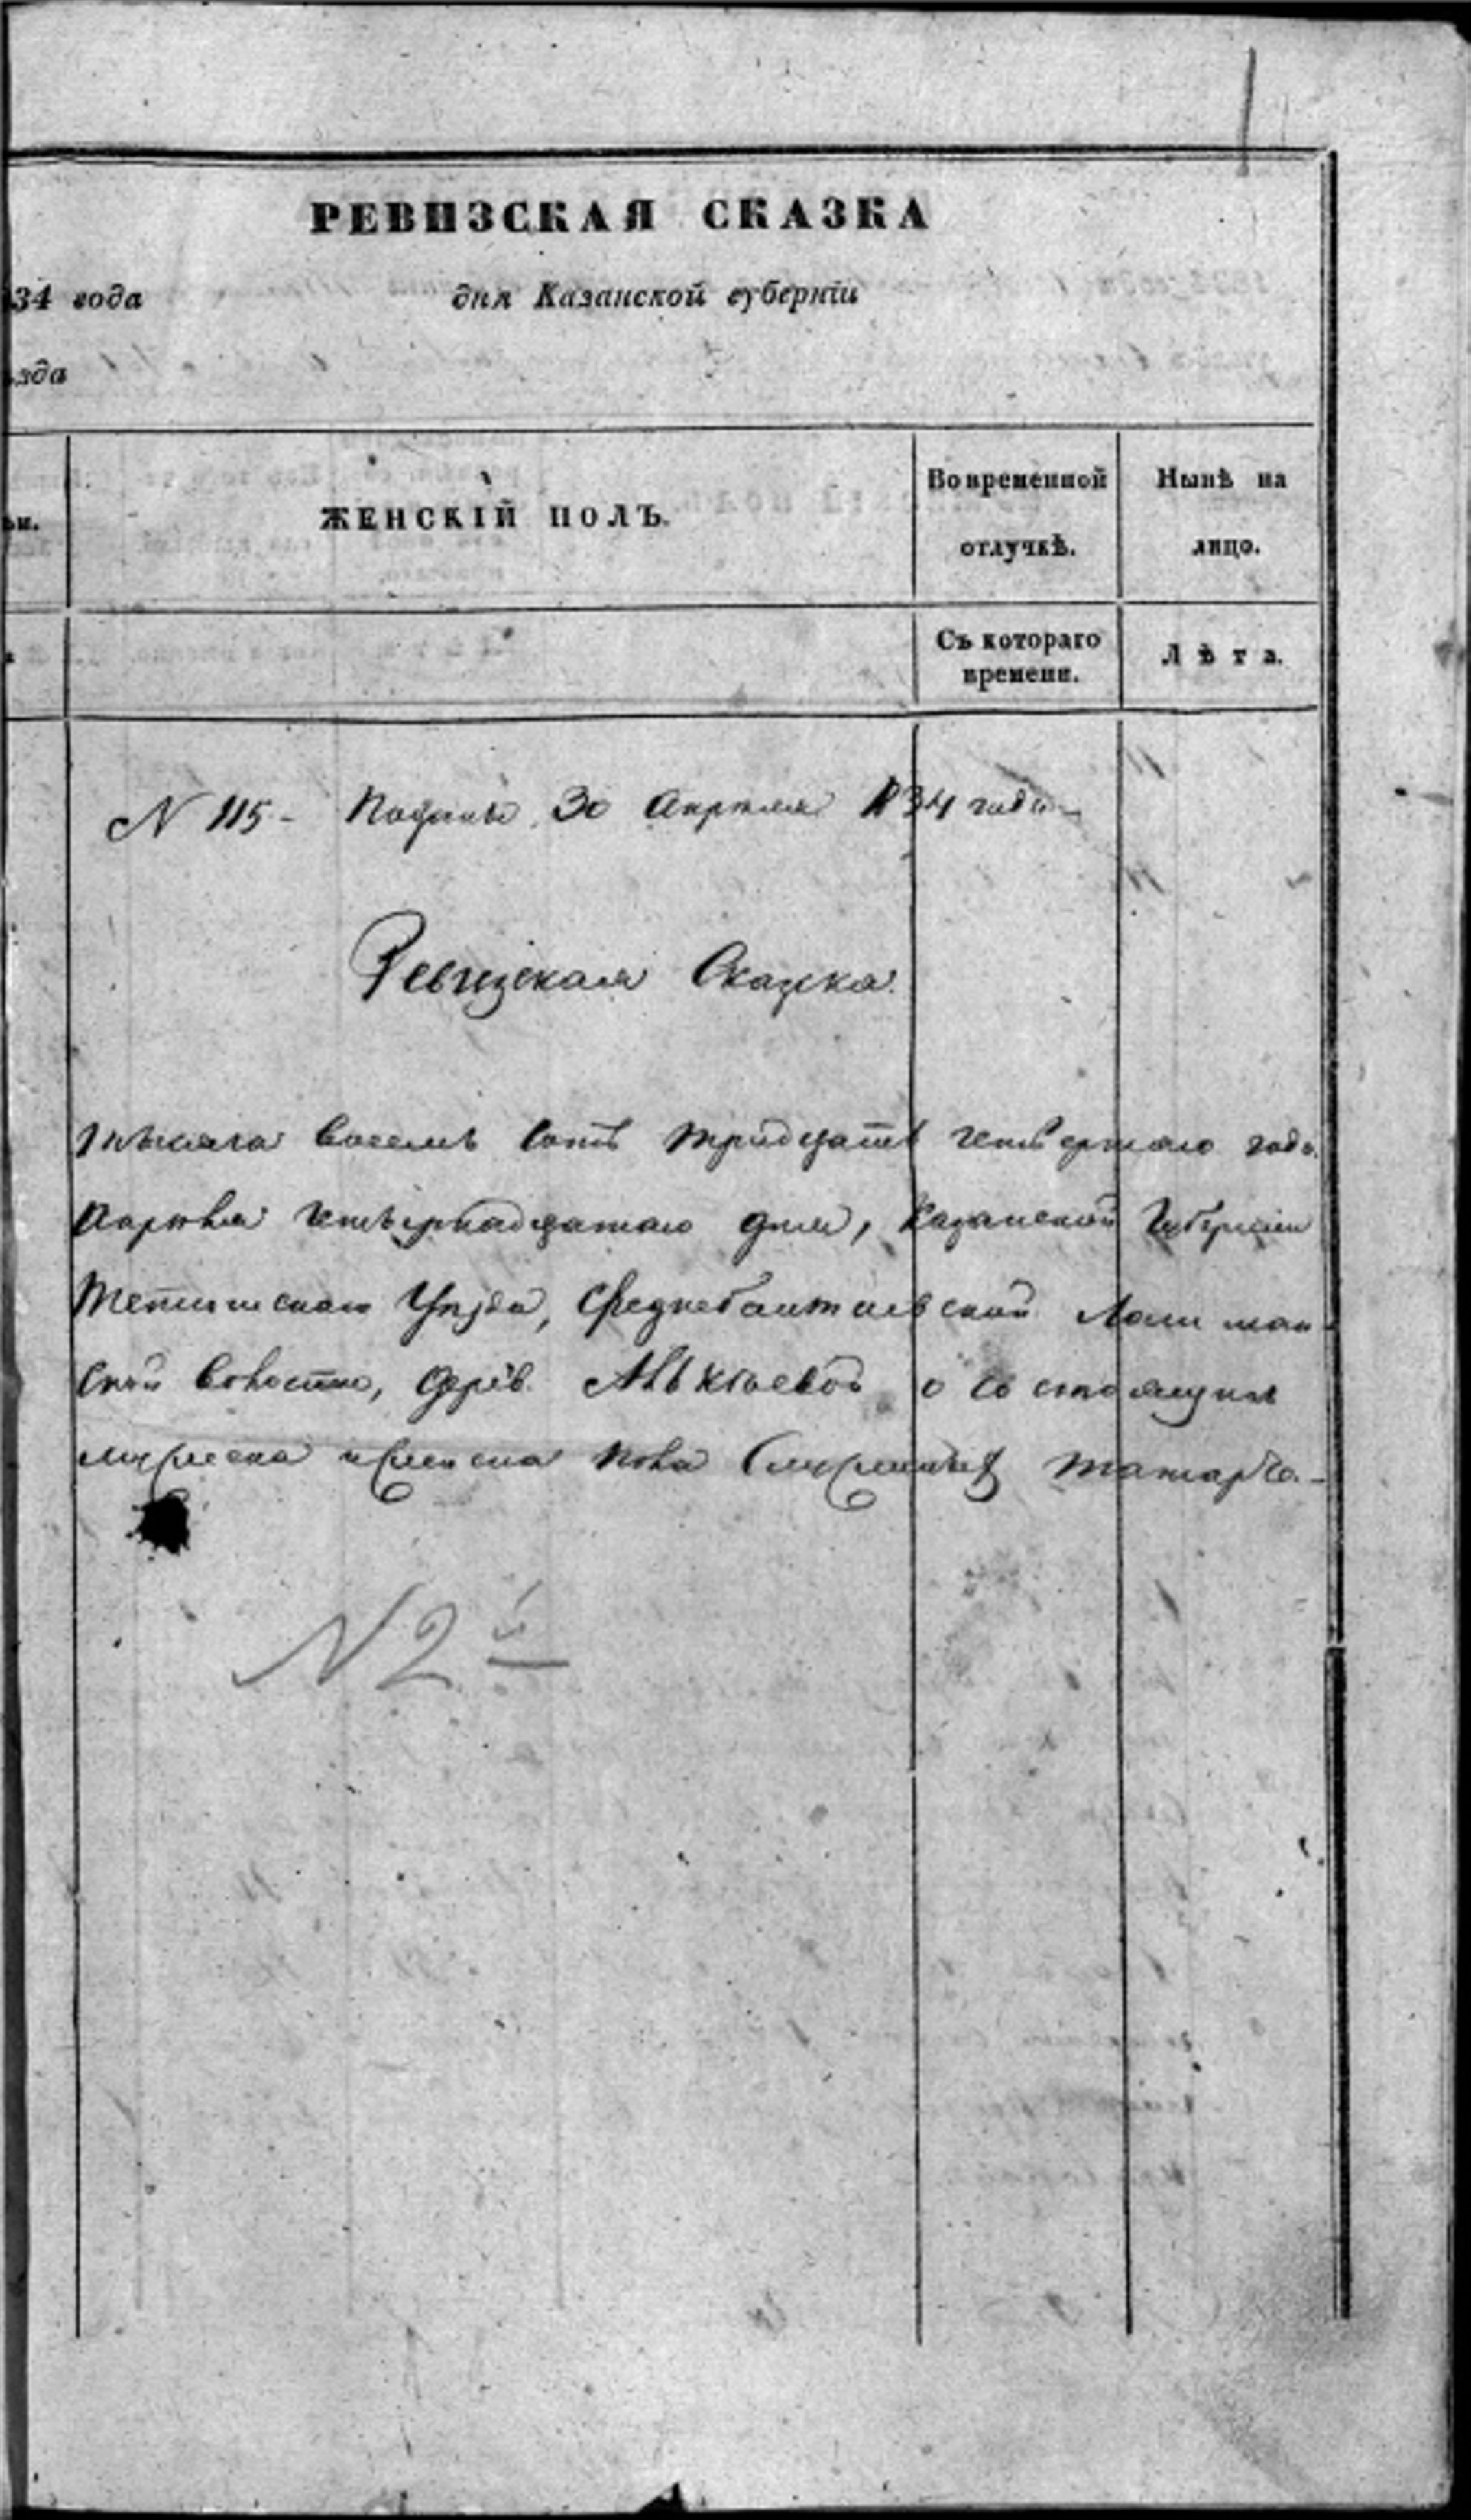 РЕВИЗСКАЯ СКАЗКА
34 года дня Казанской губерніи
ѣзда
ЖЕНСКІЙ ПОЛЪ.
Во временной
отлучкѣ.
Нынѣ на
лицо.
Съ котораго
времени.
Лѣта.
N 115 - Подана 30 Апреля 1834 года
Ревизская Сказка.
Тысяча восемь сотъ тридцать четвертаго года
Апреля четырнадцатаго дня, Казанской Губерніи
Тетюшскаго Уезда, Лашман-
ской волости, дерев. о состоящихъ
мужеска и женска пола татаръ.
N 2й